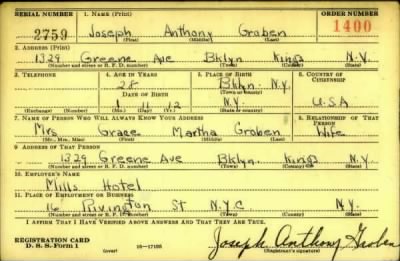 SERIAL NUMBER 1. NAME (Print) ORDER NUMBER
2759 Joseph Anthony Groben 1400
(First) (Middle) (Last)
2. ADDRESS (Print)
1329 Greene Ave Bklyn Kings N.Y.
(Number and street or R. F. D. number) (Town) (County) (State)
3. TELEPHONE 4. AGE IN YEARS 5. PLACE OF BIRTH 6. COUNTRY OF CITIZENSHIP
28 Bklyn. N.Y.
DATE OF BIRTH (Town or county)
1 11 12 N.Y. U.S.A
(Exchange) (Number) (Mo.) (Day) (Yr.) (State or country)
7. NAME OF PERSON WHO WILL ALWAYS KNOW YOUR ADDRESS 8. RELATIONSHIP OF THAT PERSON
Mrs Grace Martha Groben Wife
(Mr., Mrs., Miss) (First) (Middle) (Last)
9. ADDRESS OF THAT PERSON
1329 Greene Ave Bklyn. Kings N.Y.
(Number and street or R. F. D. number) (Town) (County) (State)
10. EMPLOYER'S NAME
Mills Hotel
11. PLACE OF EMPLOYMENT OR BUSINESS
16 Rivington St N.Y.C N.Y.
(Number and street or R. F. D. number) (Town) (County) (State)
I AFFIRM THAT I HAVE VERIFIED ABOVE ANSWERS AND THAT THEY ARE TRUE.
REGISTRATION CARD
D. S. S. Form 1 (over) 16-17105 Joseph Anthony Groben
(Registrant's signature)